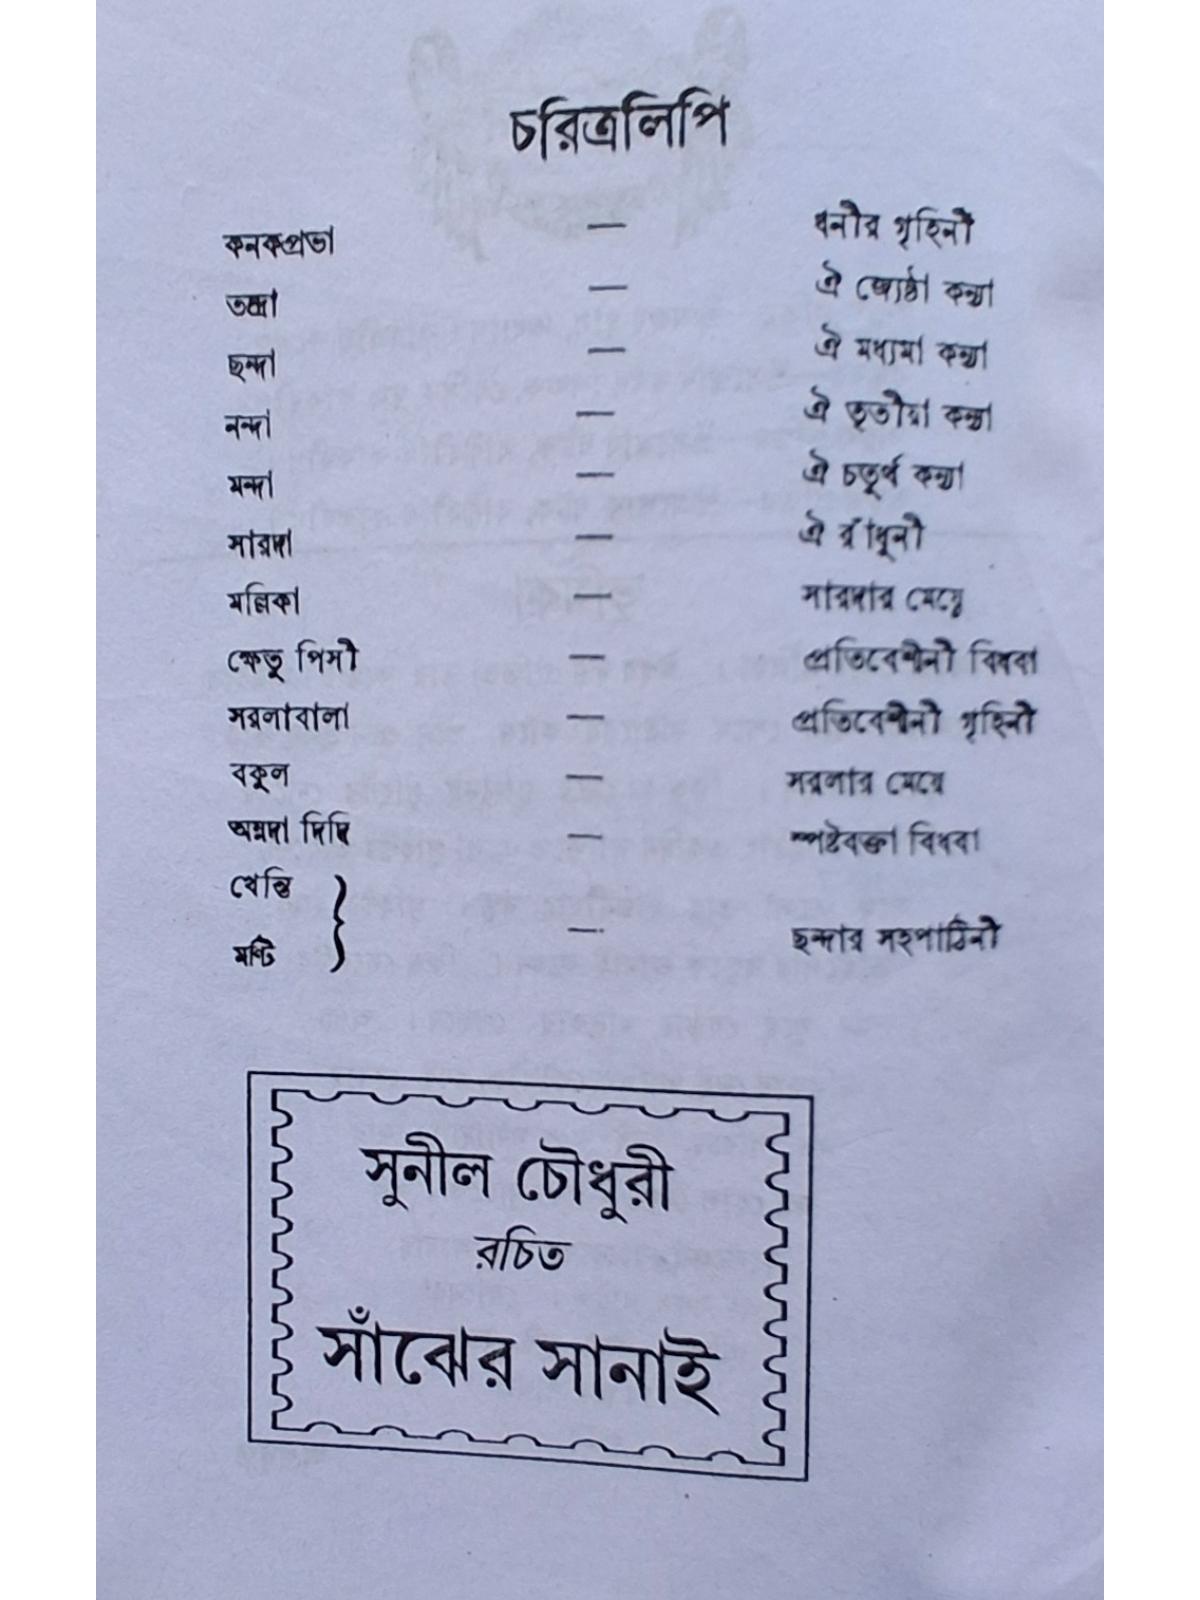 চরিত্রলিপি
কনকপ্রভা — ধনীর গৃহিনী
তন্দ্রা — ঐ জ্যেষ্ঠা কন্যা
ছন্দা — ঐ মধ্যমা কন্যা
নন্দা — ঐ তৃতীয়া কন্যা
মন্দা — ঐ চতুর্থ কন্যা
সারদা — ঐ রাঁধুনী
মল্লিকা — সারদার মেয়ে
ক্ষেতু পিসী — প্রতিবেশীনী বিধবা
সরলাবালা — প্রতিবেশীনী গৃহিনী
বকুল — সরলার মেয়ে
অন্নদা দিদি — স্পষ্টবক্তা বিধবা
খেন্তি
মণ্টি } — ছন্দার সহপাঠিনী
সুনীল চৌধুরী
রচিত
সাঁঝের সানাই